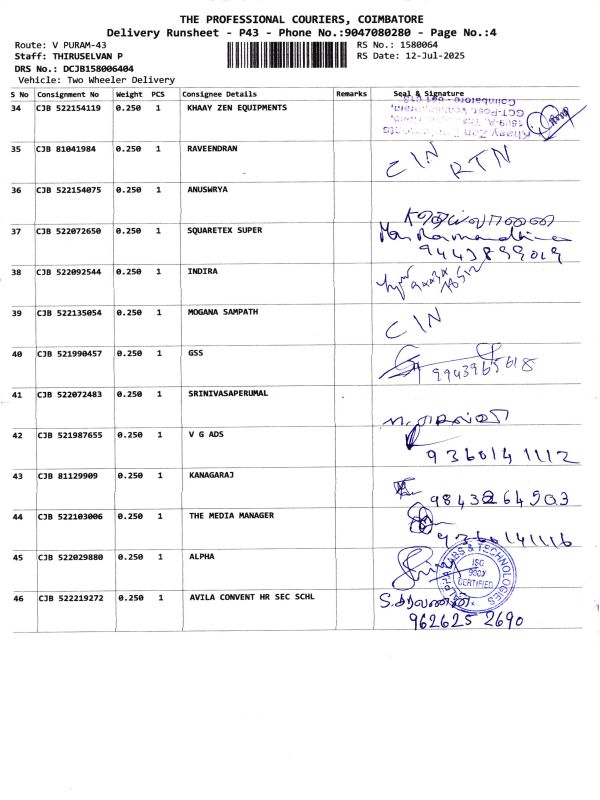 THE PROFESSIONAL COURIERS, COIMBATORE
Delivery Runsheet - P43 - Phone No.:9047080280 - Page No.:4
Route: V PURAM-43 RS No.: 1580064
Staff: THIRUSELVAN P RS Date: 12-Jul-2025
DRS No.: DCJB158006404
Vehicle: Two Wheeler Delivery
S No Consignment No Weight PCS Consignee Details Remarks Seal & Signature
34 CJB 522154119 0.250 1 KHAAY ZEN EQUIPMENTS
35 CJB 81041984 0.250 1 RAVEENDRAN CIN RTN
36 CJB 522154075 0.250 1 ANUSWRYA
37 CJB 522072650 0.250 1 SQUARETEX SUPER
38 CJB 522092544 0.250 1 INDIRA
39 CJB 522135054 0.250 1 MOGANA SAMPATH CIN
40 CJB 521990457 0.250 1 GSS
41 CJB 522072483 0.250 1 SRINIVASAPERUMAL
42 CJB 521987655 0.250 1 V G ADS
9360141112
43 CJB 81129909 0.250 1 KANAGARAJ
9843264903
44 CJB 522103006 0.250 1 THE MEDIA MANAGER
9360141116
45 CJB 522029880 0.250 1 ALPHA
ALPHA LABS & TECHNOLOGIES
ISO
9001
CERTIFIED
46 CJB 522219272 0.250 1 AVILA CONVENT HR SEC SCHL
S. சரவணன்
962625 2690